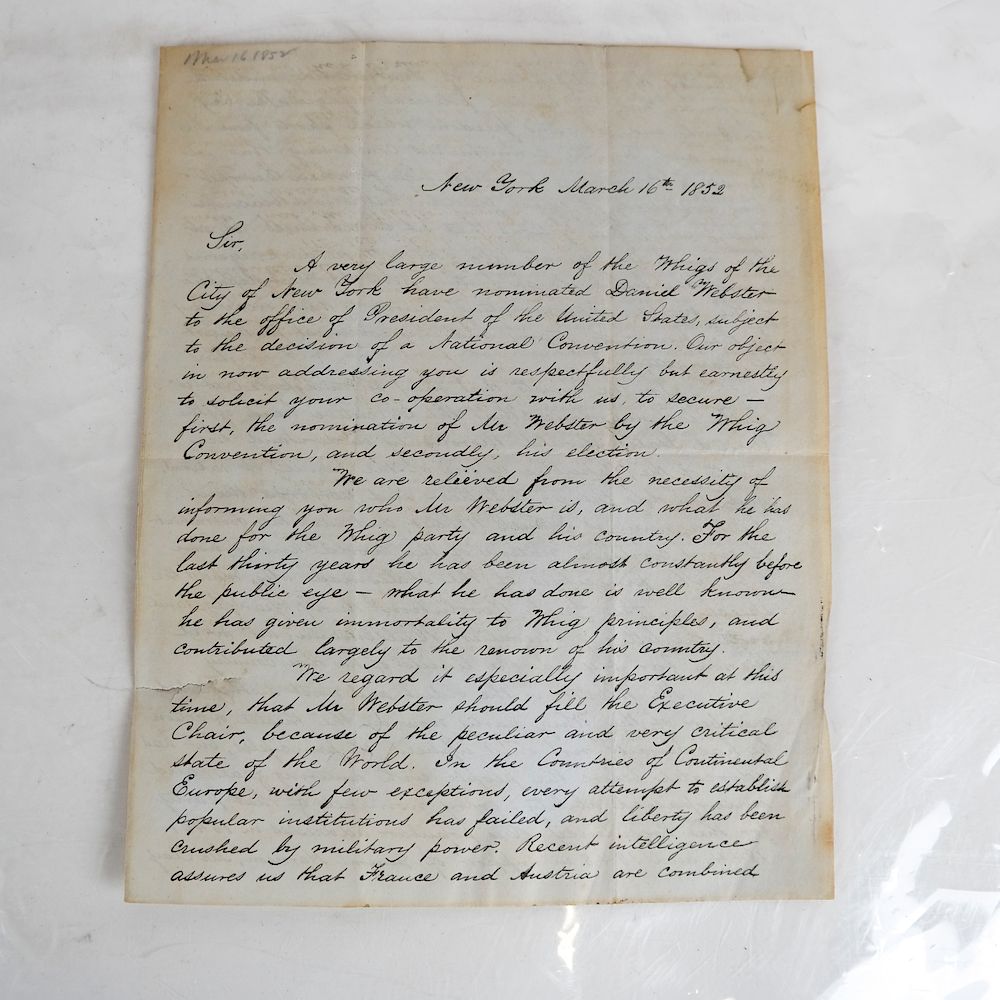 Mar 16 1852
New York March 16th 1852
Sir,
A very large number of the Whigs of the
City of New York have nominated Daniel Webster
to the office of President of the United States, subject
to the decision of a National Convention. Our object
in now addressing you is respectfully but earnestly
to solicit your co-operation with us, to secure —
first, the nomination of Mr Webster by the Whig
Convention, and secondly, his election.
We are relieved from the necessity of
informing you who Mr Webster is, and what he has
done for the Whig party and his country. For the
last thirty years he has been almost constantly before
the public eye — what he has done is well known
he has given immortality to Whig principles, and
contributed largely to the renown of his country.
We regard it especially important at this
time, that Mr Webster should fill the Executive
Chair, because of the peculiar and very critical
state of the World. In the Countries of Continental
Europe, with few exceptions, every attempt to establish
popular institutions has failed, and liberty has been
crushed by military power. Recent intelligence
assures us that France and Austria are combined